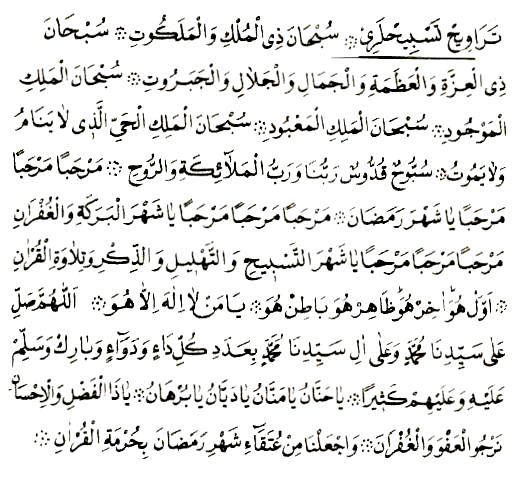 تَرَاوِيحْ تَسْبِيحْلَرِى ※ سُبْحَانَ ذِى الْمُلْكِ وَالْمَلَكُوتِ ※ سُبْحَانَ
ذِى الْعِزَّةِ وَالْعَظَمَةِ وَالْجَمَالِ وَالْجَلَالِ وَالْجَبَرُوتِ ※ سُبْحَانَ الْمَلِكِ
الْمَوْجُودِ ※ سُبْحَانَ الْمَلِكِ الْمَعْبُودِ ※ سُبْحَانَ الْمَلِكِ الْحَيِّ الَّذِى لَا يَنَامُ
وَلَا يَمُوتُ ※ سُبُّوحٌ قُدُّوسٌ رَبُّنَا وَرَبُّ الْمَلَائِكَةِ وَالرُّوحِ ※ مَرْحَبًا مَرْحَبًا
مَرْحَبًا يَا شَهْرَ رَمَضَانَ ※ مَرْحَبًا مَرْحَبًا مَرْحَبًا يَا شَهْرَ الْبَرَكَةِ وَالْغُفْرَانِ
مَرْحَبًا مَرْحَبًا مَرْحَبًا يَا شَهْرَ التَّسْبِيحِ وَالتَّهْلِيلِ وَالذِّكْرِ وَتِلَاوَةِ الْقُرْاٰنِ
※ اَوَّلْ هُوَ اٰخِرْ هُوَ ظَاهِرْ هُوَ بَاطِنْ هُوَ ※ يَا مَنْ لَا اِلٰهَ اِلَّا هُوَ ※ اَللّٰهُمَّ صَلِّ
عَلٰى سَيِّدِنَا مُحَمَّدٍ وَعَلٰى اٰلِ سَيِّدِنَا مُحَمَّدٍ بِعَدَدِ كُلِّ دَاءٍ وَدَوَاءٍ وَبَارِكْ وَسَلِّمْ
عَلَيْهِ وَعَلَيْهِمْ كَثِيرًا ※ يَا حَنَّانُ يَا مَنَّانُ يَا دَيَّانُ يَا بُرْهَانُ ※ يَا ذَا الْفَضْلِ وَالْاِحْسَانِ
نَرْجُو الْعَفْوَ وَالْغُفْرَانَ ※ وَاجْعَلْنَا مِنْ عُتَقَاءِ شَهْرِ رَمَضَانَ بِحُرْمَةِ الْقُرْاٰنِ ※